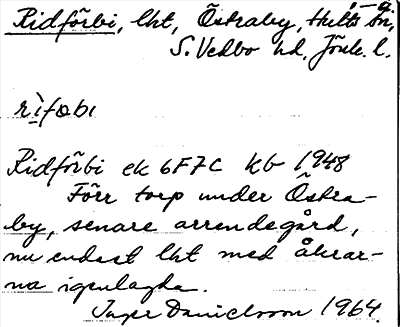 Ridförbi, lht, Östraby, Hults sn,
S. Vedbo hd, Jönk. l.
rìfəbı
Ridförbi ek 6F7C kb 1948
Förr torp under Östra-
by, senare arrendegård,
nu endast lht med åkrar-
na igenlagda.
Inger Danielsson 1964.